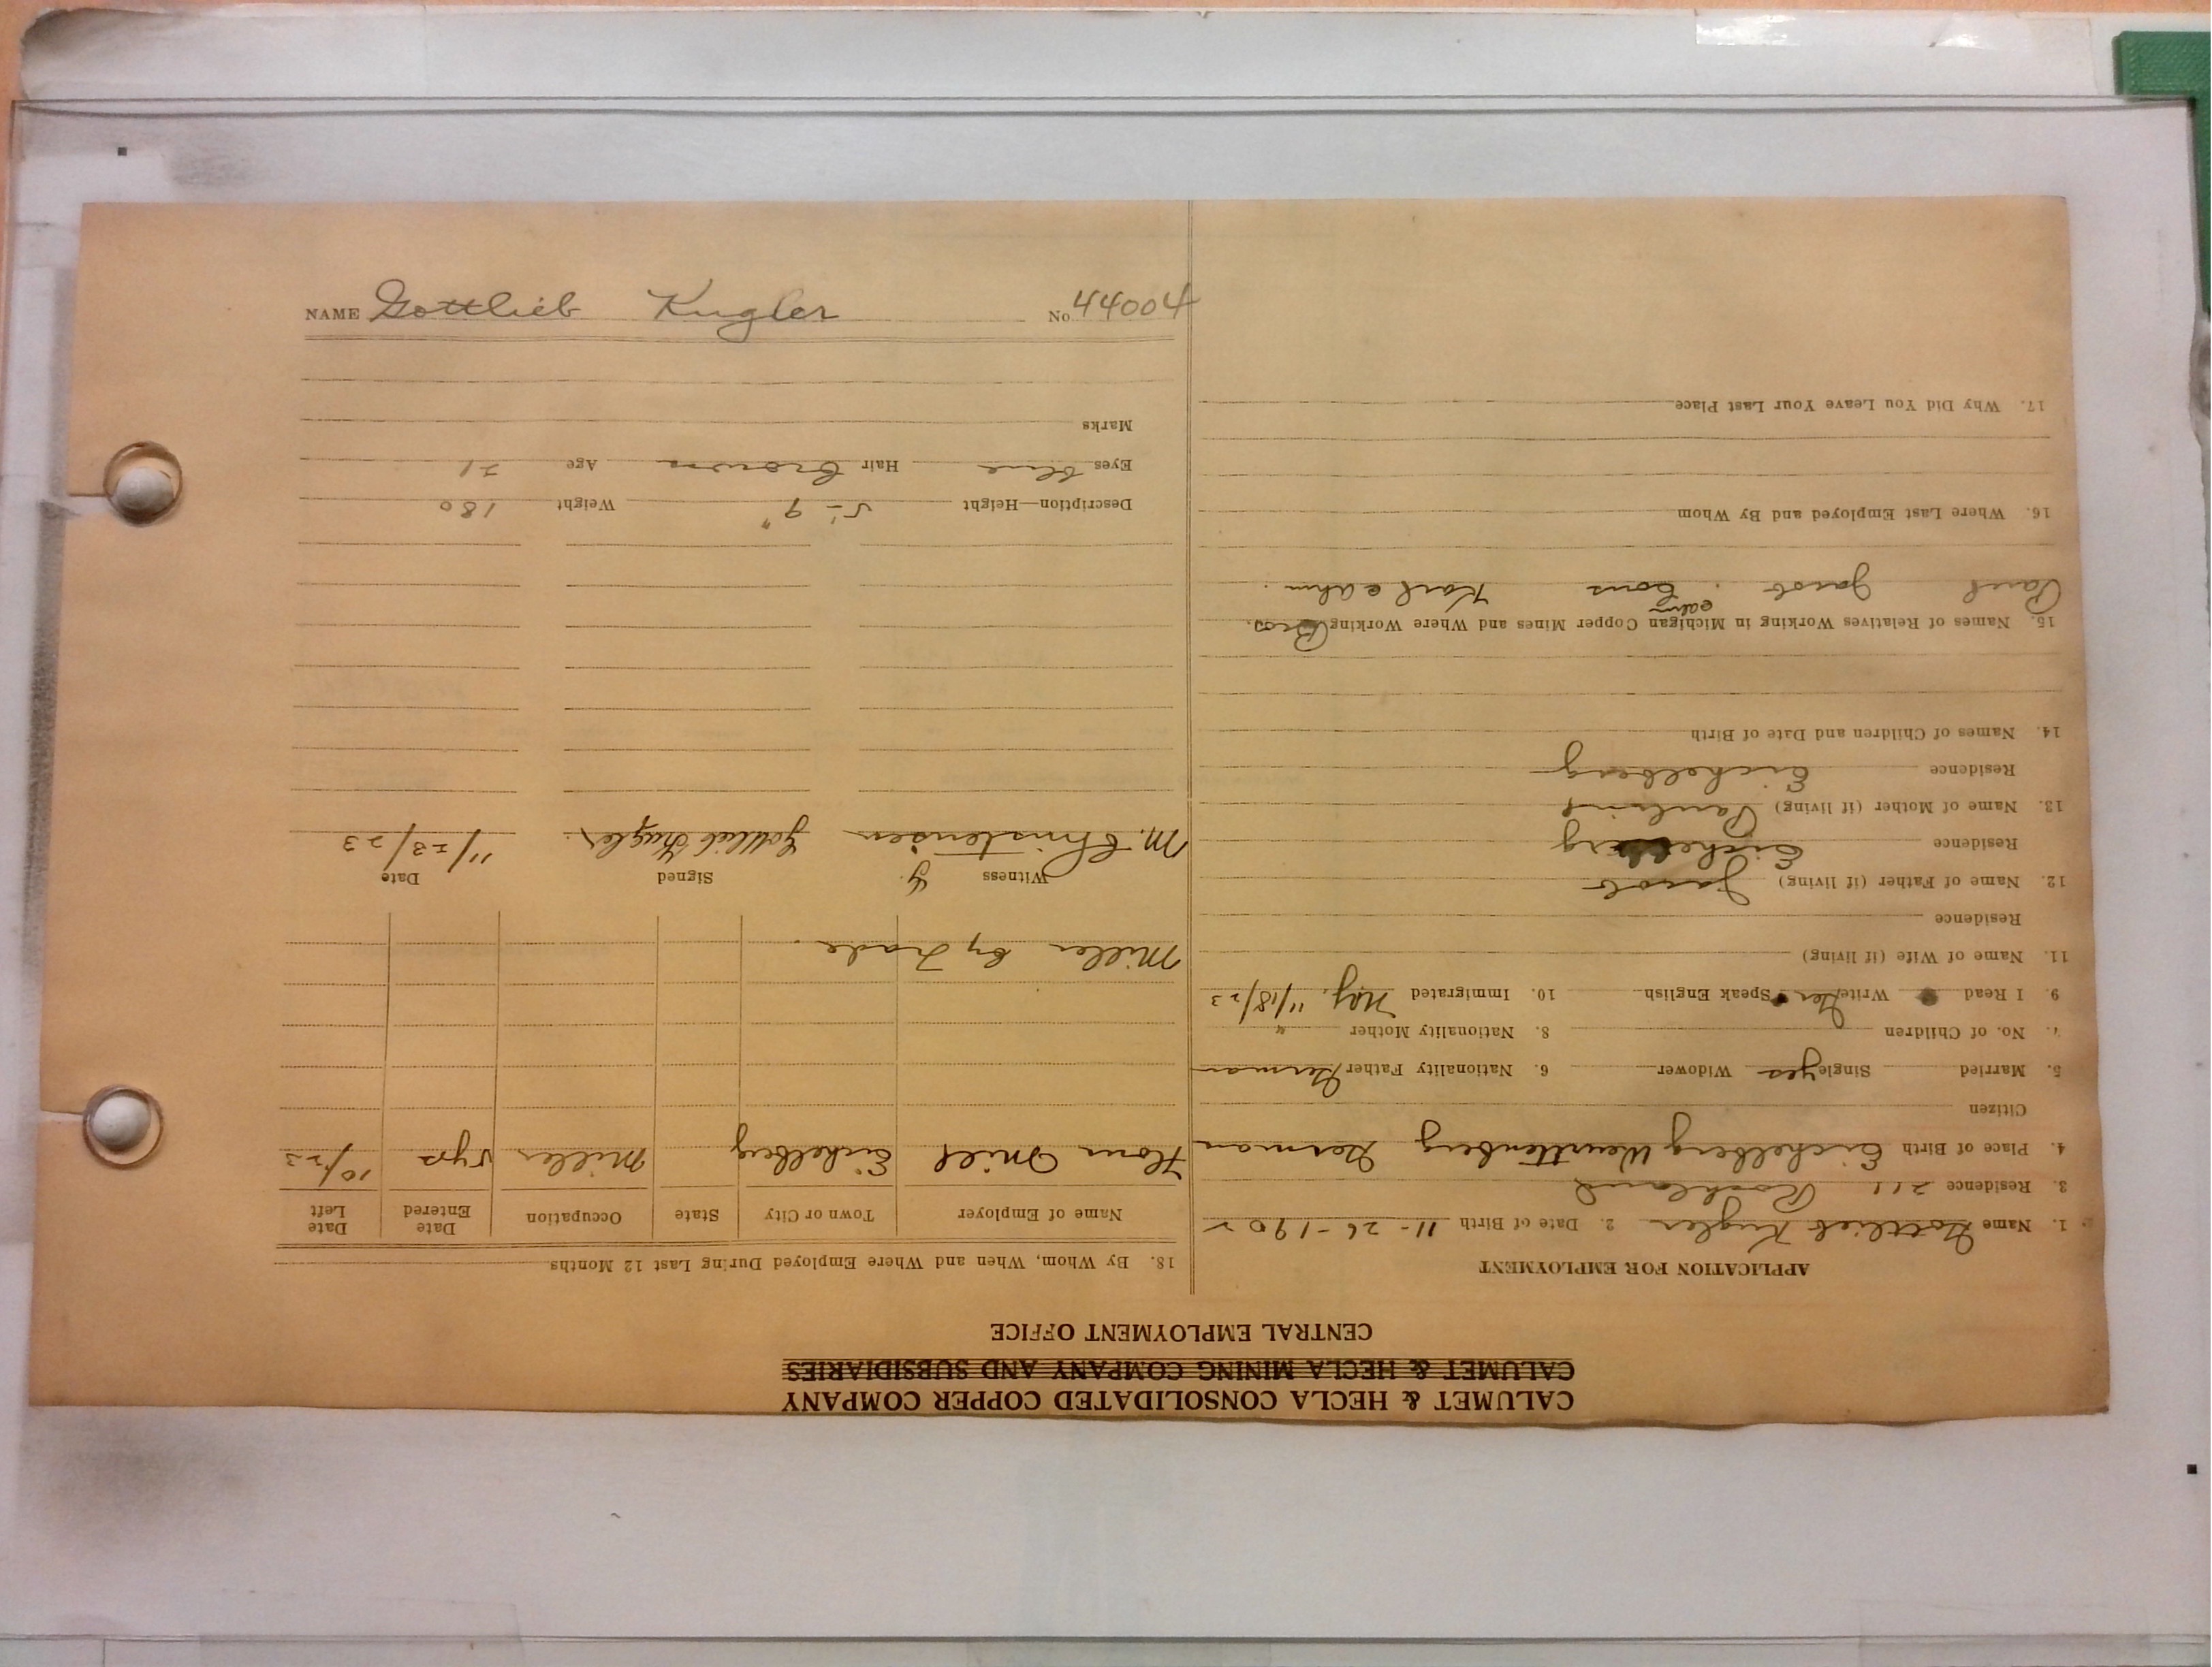 CALUMET & HECLA CONSOLIDATED COPPER COMPANY
CALUMET & HECLA MINING COMPANY AND SUBSIDIARIES
CENTRAL EMPLOYMENT OFFICE
APPLICATION FOR EMPLOYMENT
1. Name Gottlieb Kugler 2. Date of Birth 11-26-1902
3. Residence 211 Rockland
4. Place of Birth Eichelberg Wurttenberg German
Citizen
5. Married Single yes Widower 6. Nationality Father German
7. No. of Children 8. Nationality Mother "
9. I Read Write Ger Speak English 10. Immigrated 11/18/23
11. Name of Wife (if living)
Residence
12. Name of Father (if living) Jacob
Residence Eichelberg
13. Name of Mother (if living)
Residence Eichelberg
14. Names of Children and Date of Birth
15. Names of Relatives Working in Michigan Copper Mines and Where Working Bros.
Paul Jacob Cous Karl
16. Where Last Employed and By Whom
17. Why Did You Leave Your Last Place
18. By Whom, When and Where Employed During Last 12 Months
Name of Employer Town or City State Occupation Date Entered Date Left
Flour Mill Eichelberg Miller 5 yrs 10/23
Miller by trade.
Witness Signed Date
M. Christensen Gottlieb Kugler. 11/23/23
Description—Height 5'-9" Weight 180
Eyes blue Hair brown Age 21
Marks
NAME Gottlieb Kugler No. 44004